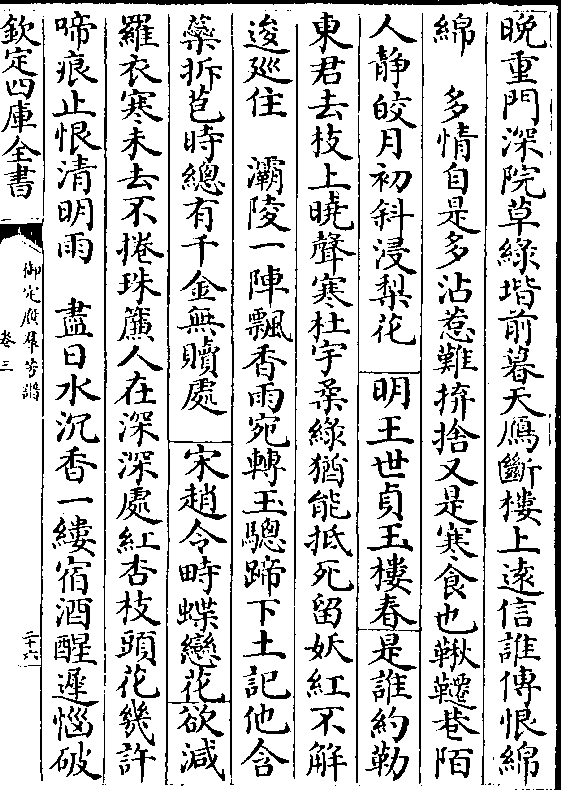 晚重門深院草綠堦前暮天鴈斷樓上遠信誰傳恨綿
綿　多情自是多沾惹難拚捨又是寒食也鞦韆巷陌
人静皎月初斜浸梨花　明王世貞玉樓春　是誰約勒
東君去枝上曉聲寒杜宇柔綠猶能抵死留妖紅不解
逡廵住　灞陵一陣飄香雨宛轉玉驄蹄下土記他含
蘂拆苞時總有千金無贖處　宋趙令畤蝶戀花　欲減
羅衣寒未去不捲珠簾人在深深處紅杏枝頭花幾許
啼痕止恨清明雨　盡日水沉香一縷宿酒醒遲惱破
欽定四庫全書
御定廣羣芳譜
卷三
二十六